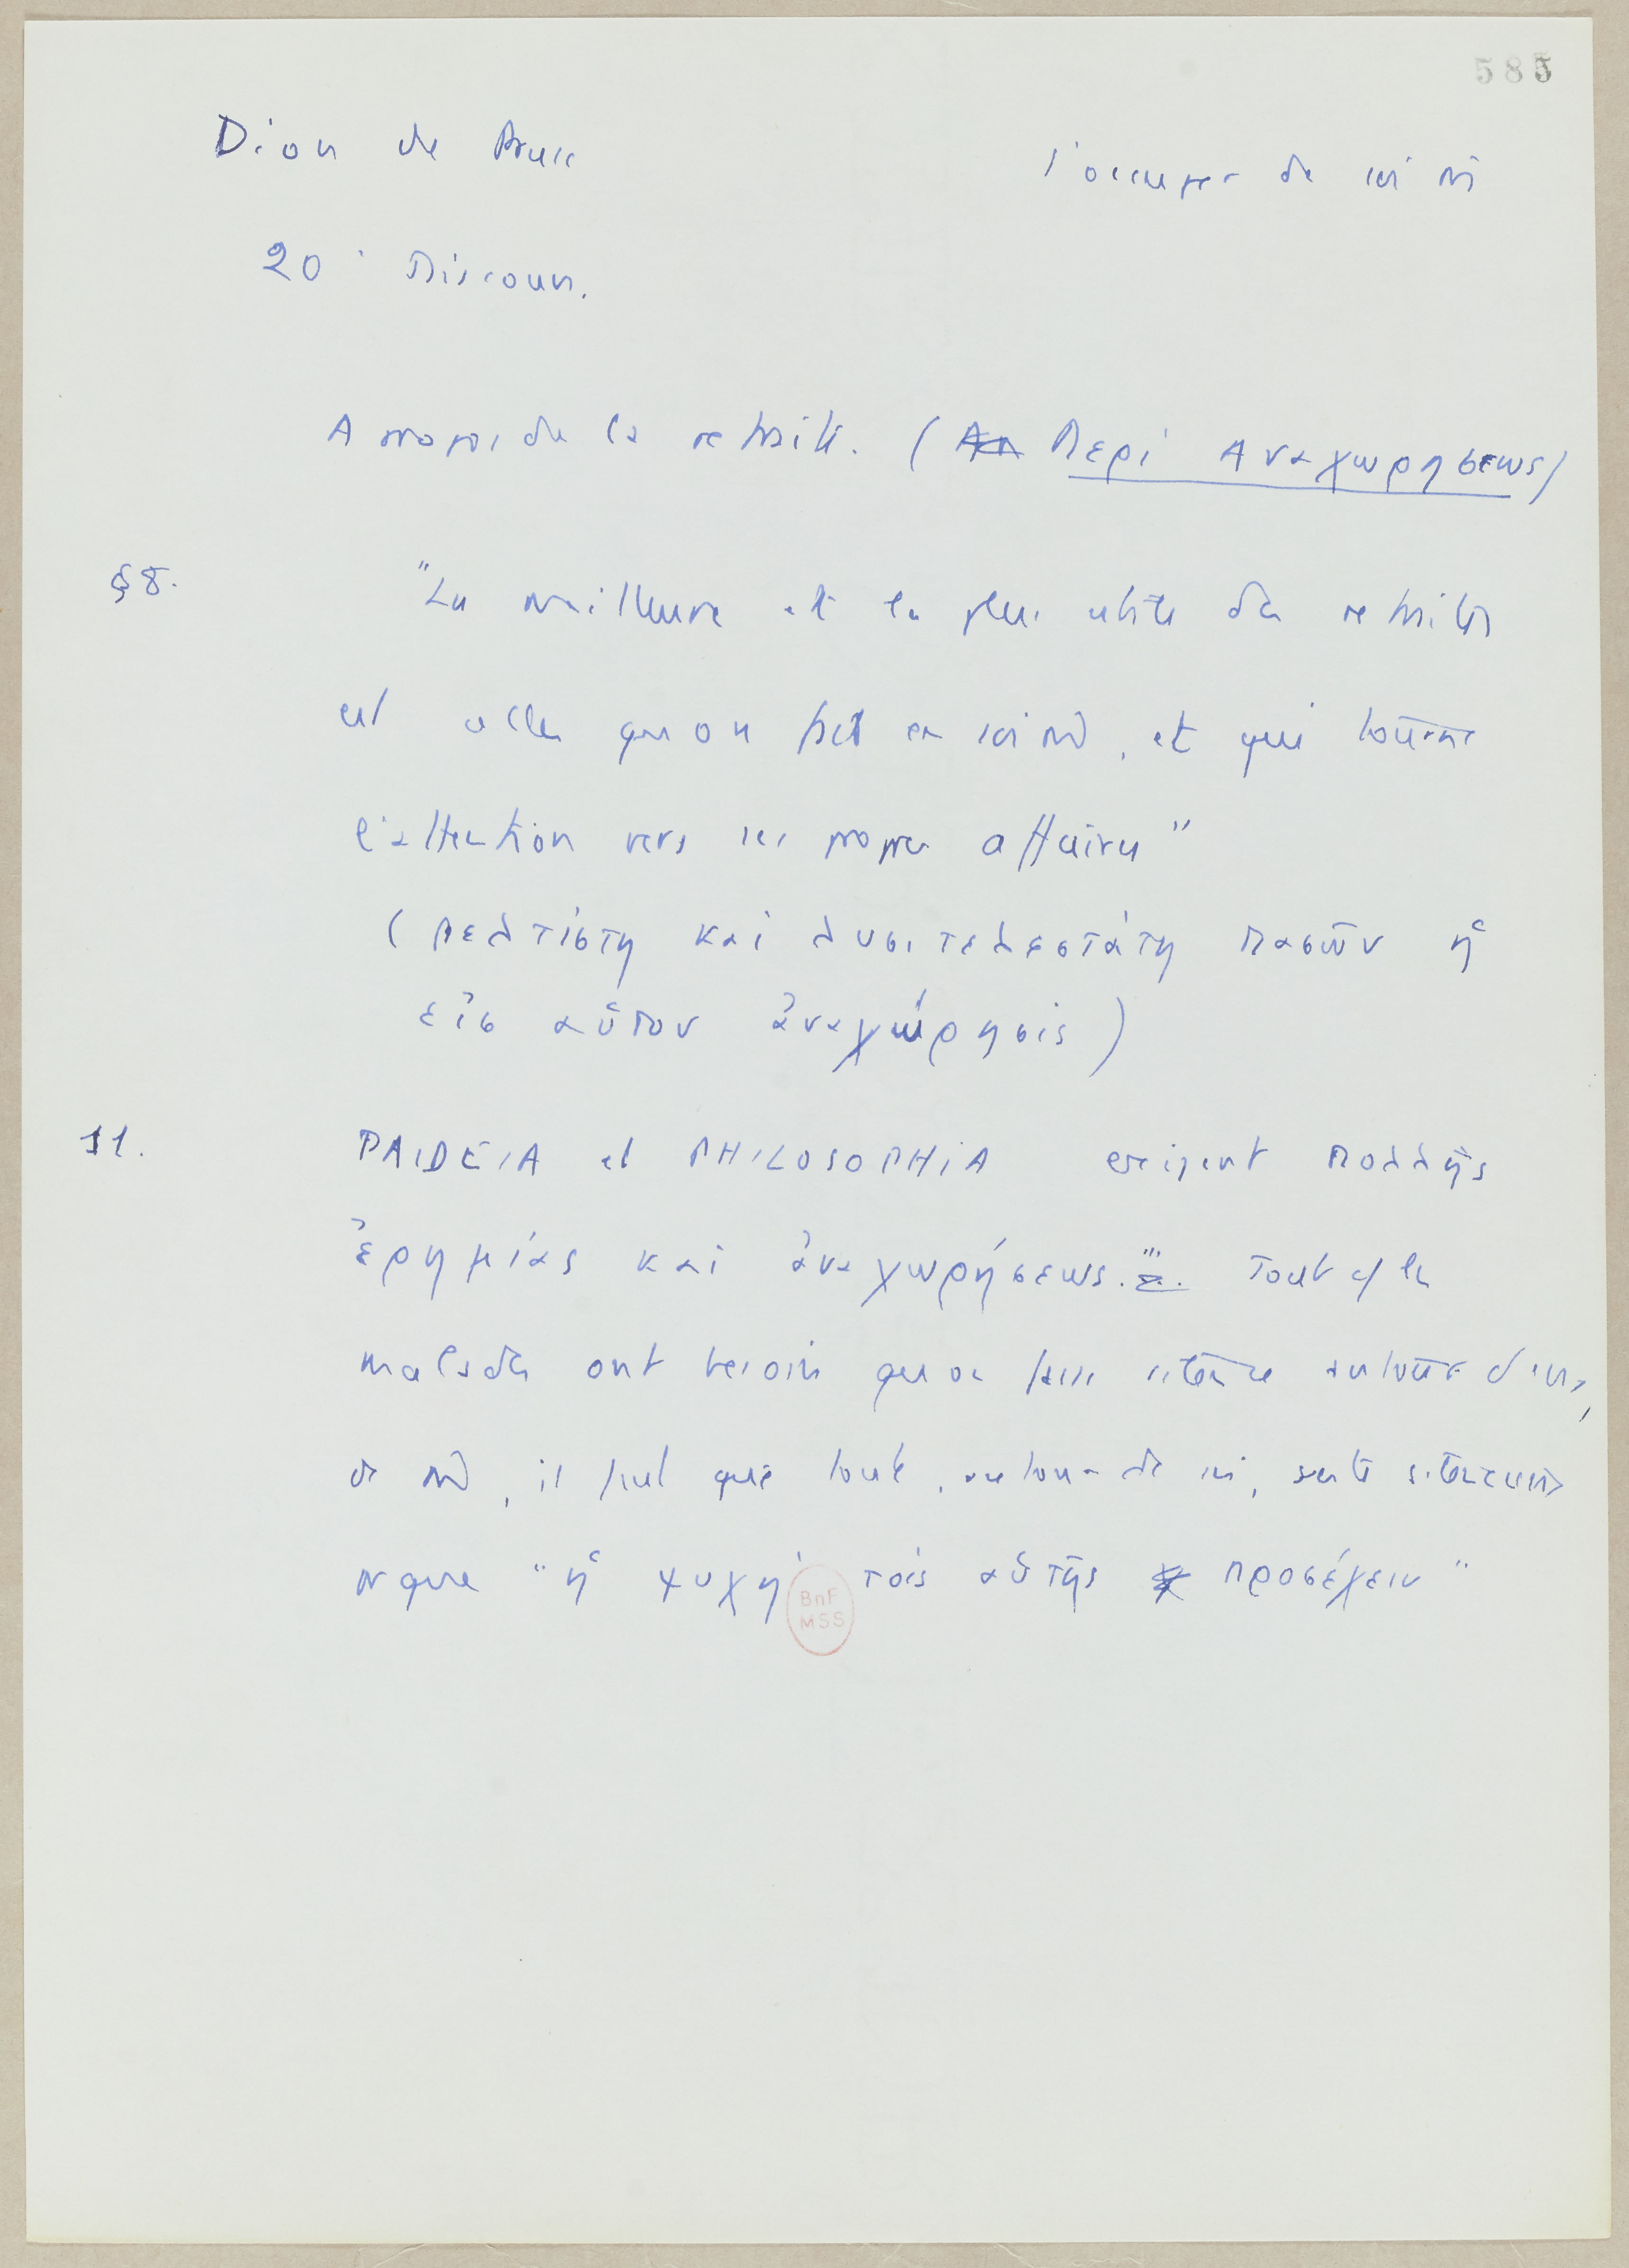 585
Dion de Pruse
s'occuper de soi m̂
20e Discours.
A propos de la retraite. (Περί Αναχωρησεως)
§ 8. "La meilleure et la plus utile des retraites
est celle qu'on fait en soi m̂, et qui tourne
l'attention vers ses propres affaires"
(βελτίστη καὶ λυσιτελεστάτη πασῶν ἡ
εἰσ αὑτον ἀναχώρησις)
11. PAIDEIA et PHILOSOPHIA exigent πολλῆς
ἐρημίας καὶ ἀναχωρήσεως. Tout c/ les
malades ont besoin qu'on fasse silence autour d'eux,
de m̂, il faut que tout, autour de soi, reste silencieux
pr que "ἡ ψυχή τοῖς αὑτῆς προσέχειν"
BnF
MSS